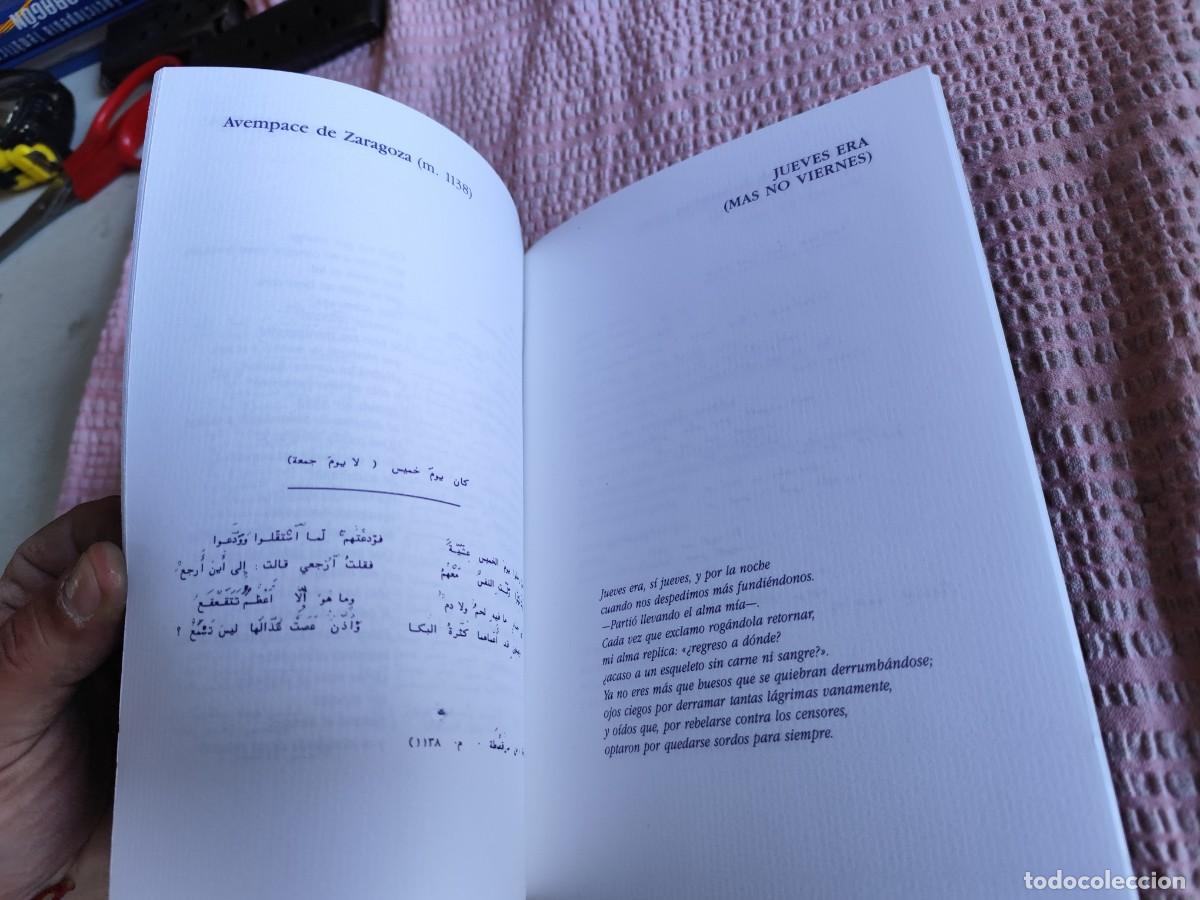 ARAGON
Avempace de Zaragoza (m. 1138)
كان يومَ خميس ( لا يومَ جمعة)
يوم الخميس عشيّة فودعتهم لما استقلوا وودعوا
النفسُ معهمُ فقلتُ ارجعي قالت : إلى أين أرجعُ
ما فيه لحمُ ولا دم وما هو إلا أعظمُ تتقعقعُ
قد أعماها كثرةُ البكا وأذن عصت عذالها ليس تسمعُ ؟
م. ١١٣٨)
JUEVES ERA
(MAS NO VIERNES)
Jueves era, sí jueves, y por la noche
cuando nos despedimos más fundiéndonos.
—Partió llevando el alma mía—.
Cada vez que exclamo rogándola retornar,
mi alma replica: «¿regreso a dónde?
¿acaso a un esqueleto sin carne ni sangre?».
Ya no eres más que buesos que se quiebran derrumbándose;
ojos ciegos por derramar tantas lágrimas vanamente,
y oídos que, por rebelarse contra los censores,
optaron por quedarse sordos para siempre.
todocoleccion